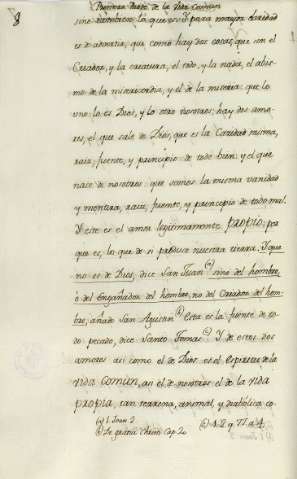 8
Primera Parte de la Vida Comun
sino demonio: lo que es assi para mayor claridad
es de advertir, que como hay dos cosas, que son el
Criador, y la creatura, el todo, y la nada, el abis-
mo de la misericordia, y el de la miseria: que lo
uno lo es Dios, y lo otro nosotros; hay dos amo-
res, el que sale de Dios, que es la Caridad misma,
raiz, fuente, y principio de todo bien: y el que
nace de nosotros: que somos la misma vanidad
y mentira, raiz, fuente, y principio de todo mal.
Y este es el amor legitimamente propio: por
que es, lo que de si produce nuestra tierra. Y que
no es de Dios, dice San Juan sino del hombre,
ò del Engañador del hombre, no del Criador del hom-
bre, añade San Agustin. Esta es la fuente de to-
do pecado, dice Santo Tomas. Y de estos dos
amores asi como el de Dios es el espiritu de la
vida comun, asi el de nosotros el de la vida
propia, tan terrena, animal, y diabolica co-
1 Joan 2
De gratia Christi Cap. 20
1. 2. q. 77. a. 4.